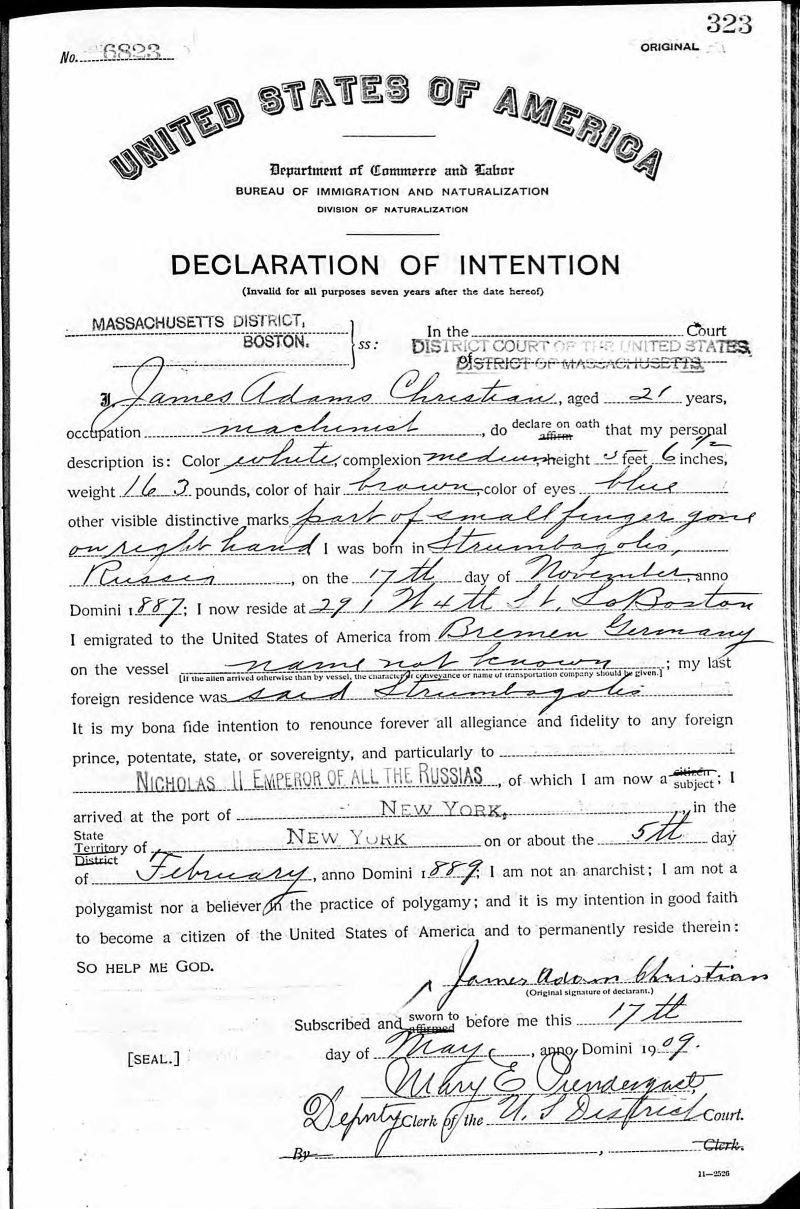 323
No. 6823
ORIGINAL
UNITED STATES OF AMERICA
Department of Commerce and Labor
BUREAU OF IMMIGRATION AND NATURALIZATION
DIVISION OF NATURALIZATION
DECLARATION OF INTENTION
(Invalid for all purposes seven years after the date hereof)
MASSACHUSETTS DISTRICT,
BOSTON.
ss:
In the Court
DISTRICT COURT OF THE UNITED STATES,
of DISTRICT OF MASSACHUSETTS.
I, James Adams Christian, aged 21 years,
occupation machinist, do declare on oath affirm that my personal
description is: Color white, complexion medium, height 5 feet 6 1/2 inches,
weight 163 pounds, color of hair brown, color of eyes blue
other visible distinctive marks part of small finger gone
on right hand I was born in Strumbagolis,
Russia, on the 17th day of November, anno
Domini 1887; I now reside at 291 W 4th St. So Boston
I emigrated to the United States of America from Bremen Germany
on the vessel name not known; my last
[If the alien arrived otherwise than by vessel, the character of conveyance or name of transportation company should be given.]
foreign residence was said Strumbagolis
It is my bona fide intention to renounce forever all allegiance and fidelity to any foreign
prince, potentate, state, or sovereignty, and particularly to
NICHOLAS II EMPEROR OF ALL THE RUSSIAS, of which I am now a citizen subject; I
arrived at the port of NEW YORK, in the
State Territory District of NEW YORK on or about the 5th day
of February, anno Domini 1889; I am not an anarchist; I am not a
polygamist nor a believer in the practice of polygamy; and it is my intention in good faith
to become a citizen of the United States of America and to permanently reside therein:
SO HELP ME GOD.
James Adam Christian
(Original signature of declarant.)
Subscribed and sworn to affirmed before me this 17th
[SEAL.]
day of May, anno Domini 1909.
Mary E Prendergast,
Deputy Clerk of the U. S District Court.
By , Clerk.
11—2526